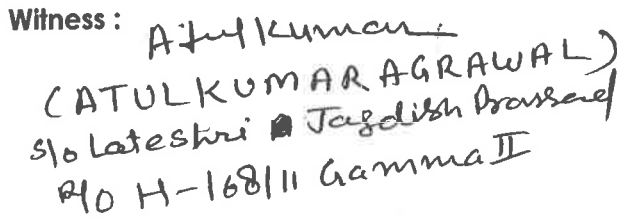 Witness :
Atulkumar
(ATULKUMAR AGRAWAL)
S/o Lateshri Jagdish Prassad
R/o H-168/11 Gamma II